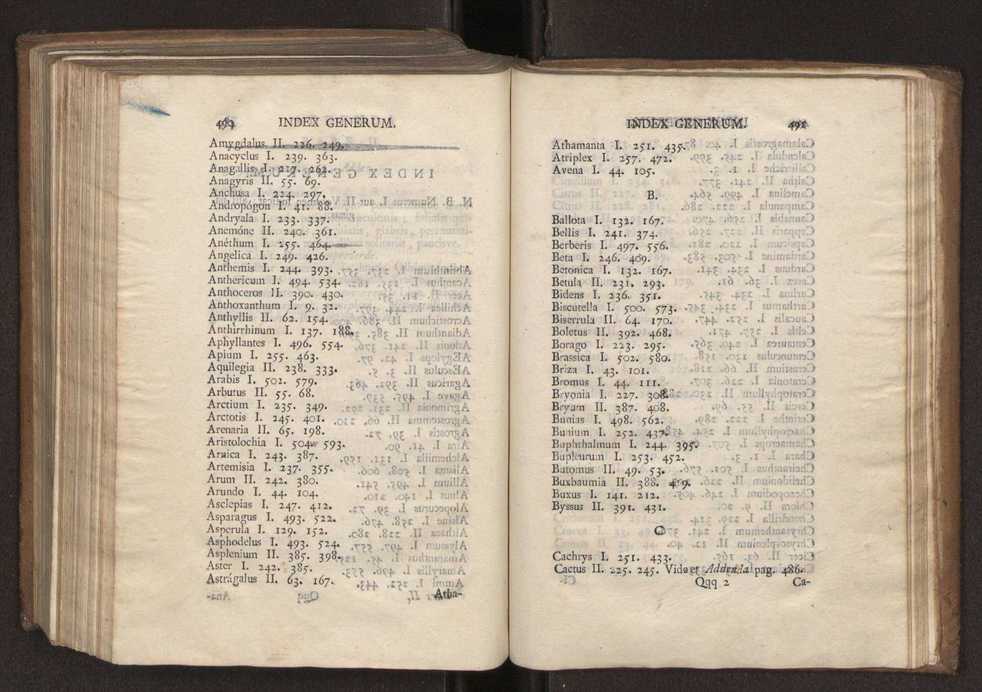 490 INDEX GENERUM.
Amygdalus II. 226. 249.
Anacyclus I. 239. 363.
Anagallis I. 227. 262.
Anagyris II. 55. 69.
Anchusa I. 224. 297.
Andropogon I. 41. 88.
Andryala I. 233. 337.
Anemóne II. 240. 361.
Anéthum I. 255. 464.
Angelica I. 249. 426.
Anthemis I. 244. 393.
Anthericum I. 494. 534.
Anthoceros II. 390. 430.
Anthoxanthum I. 9. 32.
Anthyllis II. 62. 154.
Anthirrhinum I. 137. 188.
Aphyllantes I. 496. 554.
Apium I. 255. 463.
Aquilegia II. 238. 333.
Arabis I. 502. 579.
Arbutus II. 55. 68.
Arctium I. 235. 349.
Arctotis I. 245. 401.
Arenaria II. 65. 198.
Aristolochia I. 504. 593.
Arnica I. 243. 387.
Artemisia I. 237. 355.
Arum II. 242. 380.
Arundo I. 44. 104.
Asclepias I. 247. 412.
Asparagus I. 493. 522.
Asperula I. 129. 152.
Asphodelus I. 493. 524.
Asplenium II. 385. 398.
Aster I. 242. 385.
Astrágalus II. 63. 167.
Atha-
INDEX GENERUM. 491
Athamanta I. 251. 435.
Atriplex I. 257. 472.
Avena I. 44. 105.
B.
Ballota I. 132. 167.
Bellis I. 241. 374.
Berberis I. 497. 556.
Beta I. 246. 409.
Betonica I. 132. 167.
Betula II. 231. 293.
Bidens I. 236. 351.
Biscutella I. 500. 573.
Biserrula II. 64. 170.
Boletus II. 392. 468.
Borago I. 223. 295.
Brassica I. 502. 580.
Briza I. 43. 101.
Bromus I. 44. 111.
Bryonia I. 227. 308.
Bryum II. 387. 408.
Bunias I. 498. 562.
Bunium I. 252. 437.
Buphthalmum I. 244. 395.
Bupleurum I. 253. 452.
Butomus II. 49. 53.
Buxbaumia II. 388. 409.
Buxus I. 141. 212.
Byssus II. 391. 431.
C
Cachrys I. 251. 433.
Cactus II. 225. 245. Vide et Addenda pag. 486.
Qqq 2 Ca-